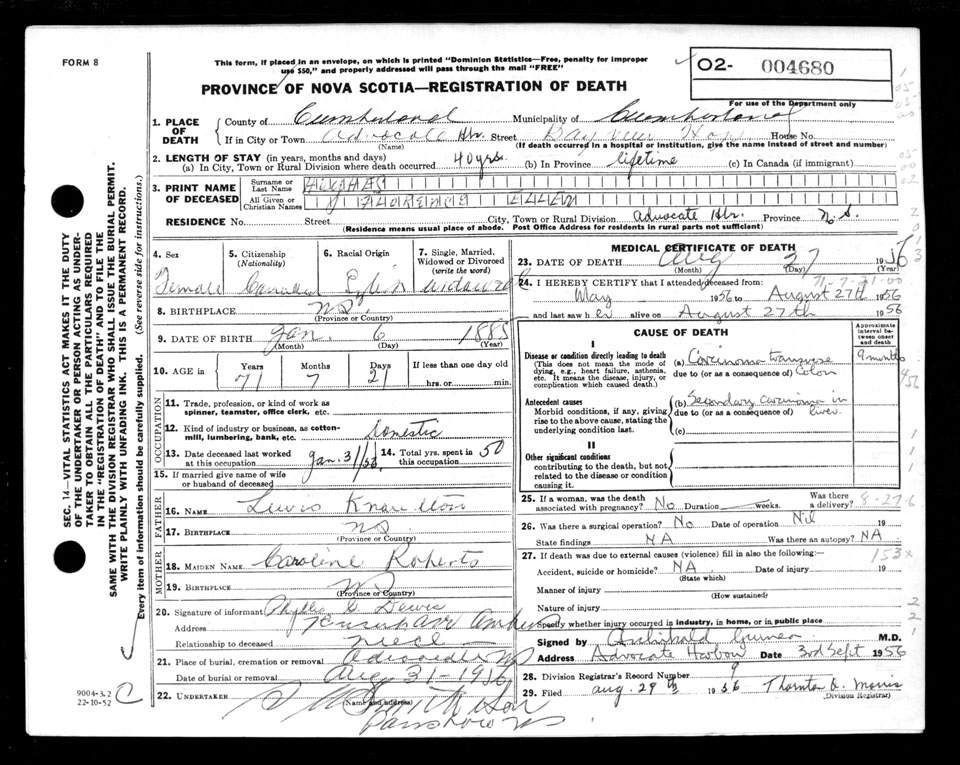 FORM 8
This form, if placed in an envelope, on which is printed "Dominion Statistics—Free, penalty for improper
use $50," and properly addressed will pass through the mail "FREE"
PROVINCE OF NOVA SCOTIA—REGISTRATION OF DEATH
02- 004680
For use of the Department only
1. PLACE OF DEATH
County of Cumberland Municipality of Cumberland
If in City or Town Advocate Hbr. Street Bay View House No.
(Name) (If death occurred in a hospital or institution, give the name instead of street and number)
2. LENGTH OF STAY (in years, months and days)
(a) In City, Town or Rural Division where death occurred 40 yrs. (b) In Province lifetime (c) In Canada (if immigrant)
3. PRINT NAME OF DECEASED
Surname or Last Name
All Given or Christian Names FLORENCE ELLEN
RESIDENCE No. Street City, Town or Rural Division Advocate Hbr. Province N.S.
(Residence means usual place of abode. Post Office Address for residents in rural parts not sufficient)
4. Sex
Female
5. Citizenship
(Nationality)
Canada
6. Racial Origin
English
7. Single, Married,
Widowed or Divorced
(write the word)
widowed
8. BIRTHPLACE NS
(Province or Country)
9. DATE OF BIRTH Jan. 6 1885
(Month) (Day) (Year)
10. AGE in Years Months Days If less than one day old
71 7 21 hrs. or min.
OCCUPATION
11. Trade, profession, or kind of work as
spinner, teamster, office clerk, etc.
12. Kind of industry or business, as cotton-
mill, lumbering, bank, etc. Domestic
13. Date deceased last worked
at this occupation Jan. 31/56
14. Total yrs. spent in
this occupation 50
15. If married give name of wife
or husband of deceased
FATHER
16. NAME Lewis Knowlton
17. BIRTHPLACE NS
(Province or Country)
MOTHER
18. MAIDEN NAME Caroline Roberts
19. BIRTHPLACE NS
(Province or Country)
20. Signature of informant Phyllis G. Lewis
Address
Relationship to deceased niece
21. Place of burial, cremation or removal Advocate NS
Date of burial or removal Aug 31-1956
22. UNDERTAKER
(Name and address)
Parrsboro NS.
MEDICAL CERTIFICATE OF DEATH
23. DATE OF DEATH Aug 27 1956
(Month) (Day) (Year)
71-7-21-00
24. I HEREBY CERTIFY that I attended deceased from:
May 1956 to August 27th 1956
and last saw her alive on August 27th 1956
CAUSE OF DEATH
Approximate interval between onset and death
I
Disease or condition directly leading to death
(This does not mean the mode of
dying, e.g., heart failure, asthenia,
etc. It means the disease, injury, or
complication which caused death.)
(a) Carcinoma transverse 9 months
due to (or as a consequence of) Colon
Antecedent causes
Morbid conditions, if any, giving
rise to the above cause, stating the
underlying condition last.
(b) Secondary carcinoma in
due to (or as a consequence of) liver.
(c)
II
Other significant conditions
contributing to the death, but not
related to the disease or condition
causing it.
25. If a woman, was the death
associated with pregnancy? No Duration weeks. Was there a delivery?
8-27-6
26. Was there a surgical operation? No Date of operation Nil 19
State findings NA Was there an autopsy? NA
27. If death was due to external causes (violence) fill in also the following:—
153x
Accident, suicide or homicide? NA Date of injury 19
(State which)
Manner of injury
(How sustained)
Nature of injury
Specify whether injury occurred in industry, in home, or in public place
Signed by Archibald M.D.
Address Advocate Harbour Date 3rd Sept 1956
28. Division Registrar's Record Number 9
29. Filed Aug. 29th 1956 Thornton D. Morris
(Division Registrar)
SEC. 14—VITAL STATISTICS ACT MAKES IT THE DUTY
OF THE UNDERTAKER OR PERSON ACTING AS UNDER-
TAKER TO OBTAIN ALL THE PARTICULARS REQUIRED
IN THE "REGISTRATION OF DEATH" AND TO FILE THE
SAME WITH THE DIVISION REGISTRAR WHO SHALL ISSUE THE BURIAL PERMIT.
WRITE PLAINLY WITH UNFADING INK. THIS IS A PERMANENT RECORD.
Every item of information should be carefully supplied. (See reverse side for instructions.)
9004-3.2
22-10-52
C